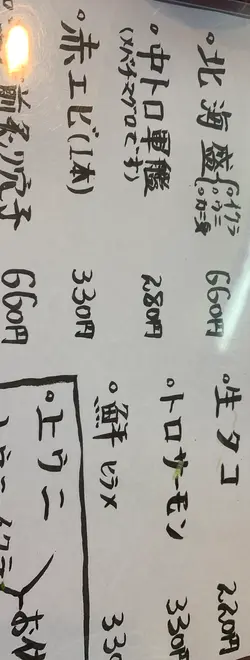 ・北海盛(・イクラ・ウニ・カニ身) 660円
・中トロ軍艦 280円
(メバチマグロです)
・赤エビ(1本) 330円
前炙り穴子 660円
・生タコ 220円
・トロサーモン 330円
・鮮ヒラメ 330
・上ウニ